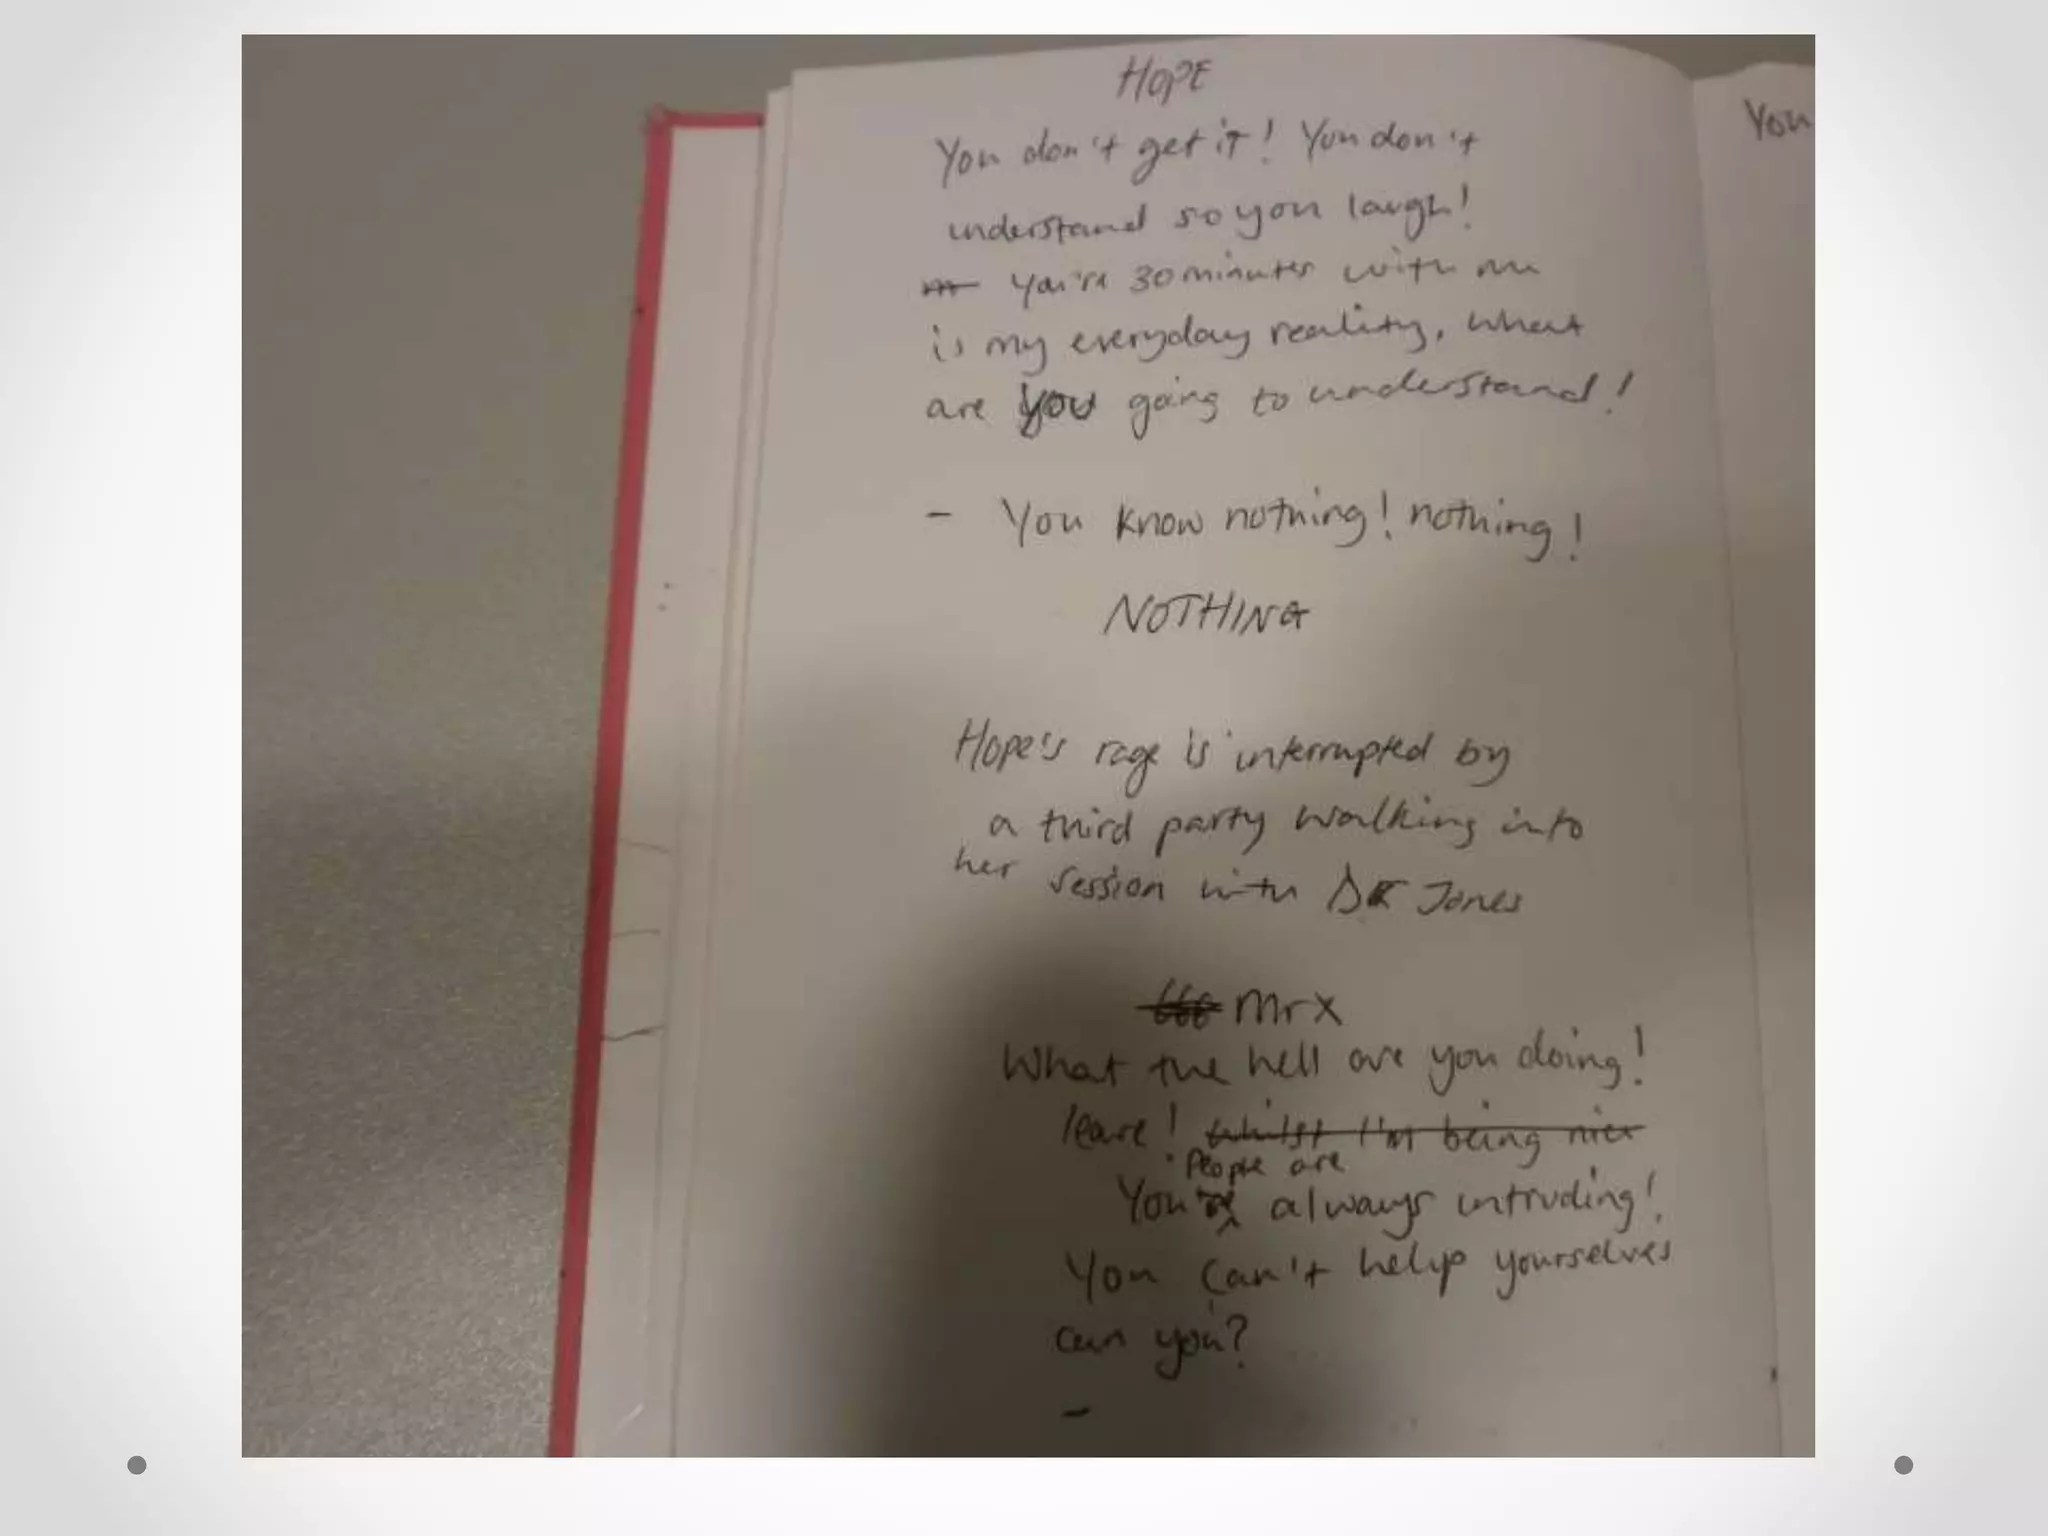 HOPE
You
You don't get it! You don't
understand so you laugh!
You're 30 minutes with me
is my everyday reality, what
are you going to understand!
- You know nothing! nothing!
NOTHING
Hope's rage is interrupted by
a third party walking into
her session with DR Jones
Mr X
What the hell are you doing!
leave! whilst I'm being nice
People are
You're always intruding!
You can't help yourselves
can you?
-